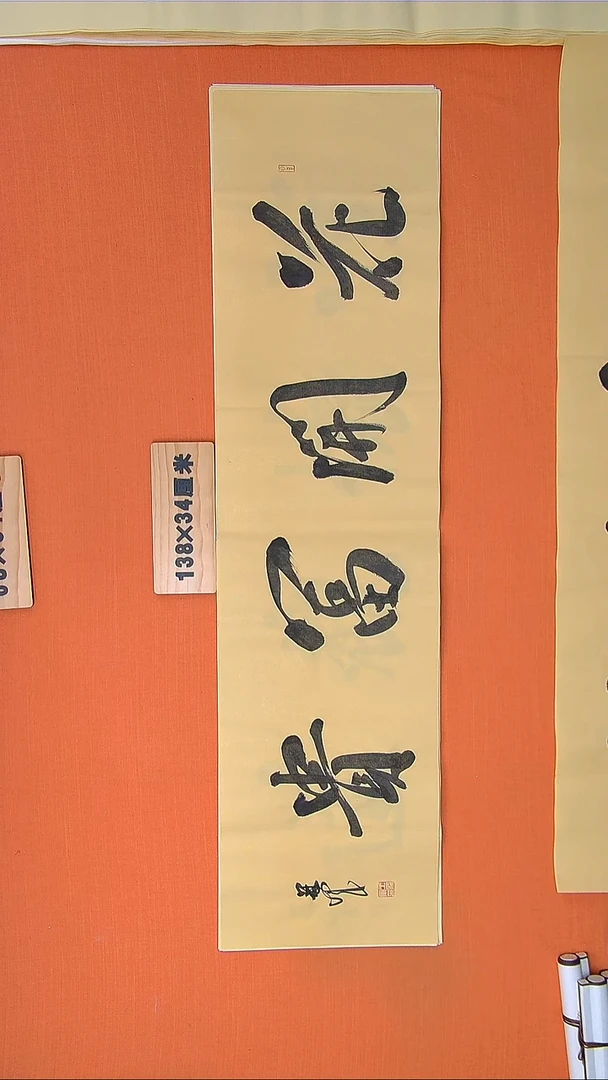 花開富貴
138×34厘米